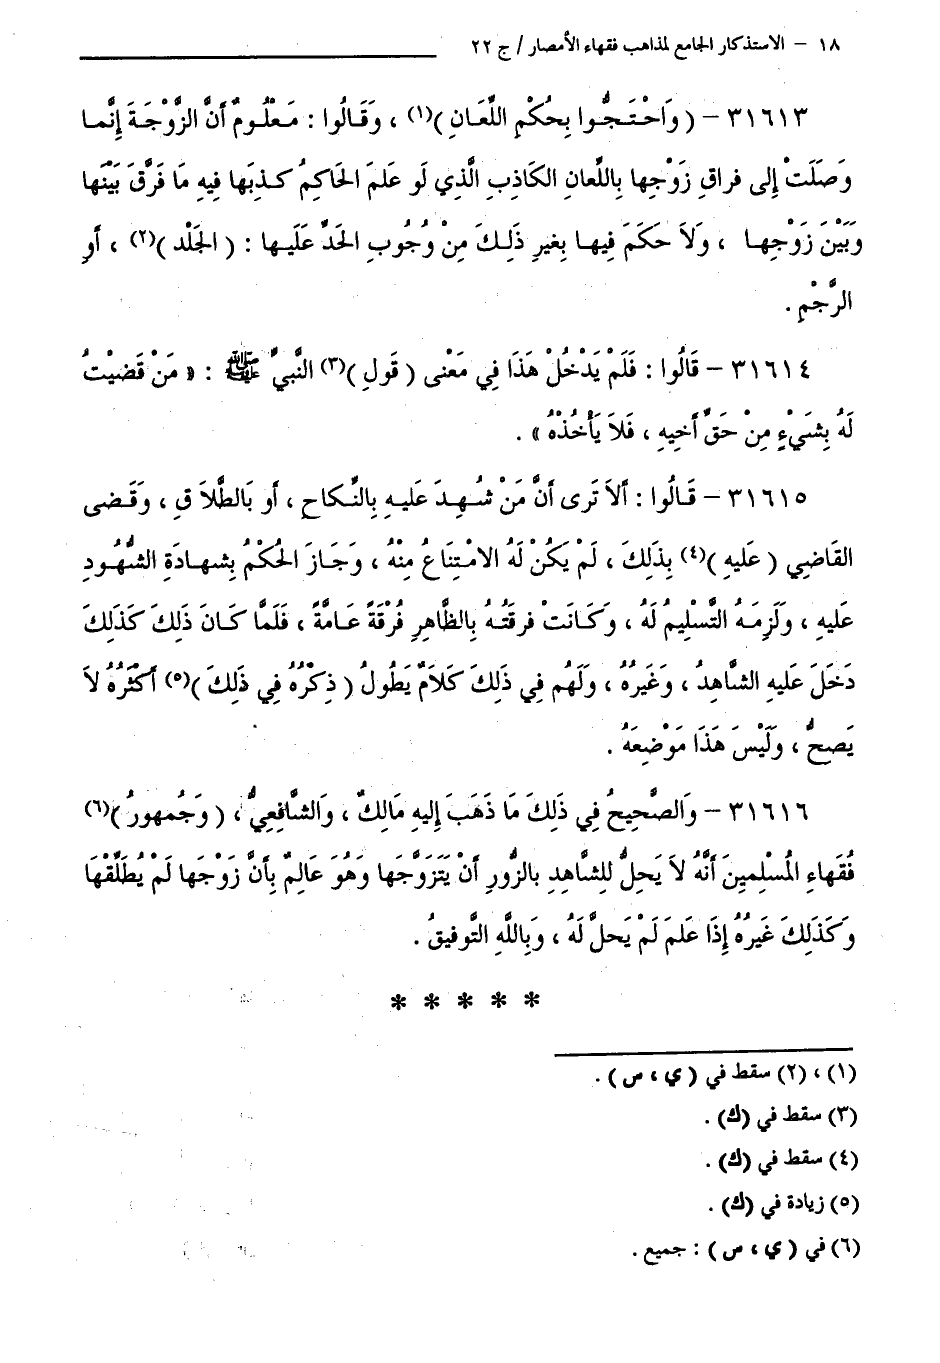 ١٨ – الاستذكار الجامع لمذاهب فقهاء الأمصار / ج ٢٢
٣١٦١٣ – ( وَاحْتَجُّوا بِحُكْمِ اللِّعَانِ )(١) ، وَقَالُوا : مَعْلُومٌ أَنَّ الزَّوْجَةَ إِنَّما
وَصَلَتْ إلى فراقِ زَوْجِها بِاللِّعانِ الكَاذِبِ الَّذِي لو عَلمَ الحَاكِمُ كذِبَها فيهِ مَا فَرَّقَ بَيْنَها
وَبَيْنَ زَوْجِها ، ولاَ حَكَمَ فيها بِغيرِ ذَلِكَ مِنْ وُجُوبِ الحَدِّ عَلَيها : ( الجَلْد )(٢) ، أو
الرَّجْمِ .
٣١٦١٤ – قَالُوا : فَلَمْ يَدْخُلْ هَذَا فِي مَعْنى ( قَولِ )(٣) النَّبيِّ ﷺ : « مَنْ قَضيْتُ
لَهُ بِشَيْءٍ مِنْ حَقِّ أَخِيهِ ، فَلاَ يَأْخُذْهُ » .
٣١٦١٥ – قَالُوا : أَلاَ تَرى أَنَّ مَنْ شُهِدَ عَليهِ بِالنِّكاحِ ، أو بَالطَّلاَقِ ، وَقَضى
القَاضِي ( عَليهِ )(٤) بِذَلِكَ ، لَمْ يَكُنْ لَهُ الامْتِنَاعُ مِنْهُ ، وَجَازَ الحُكْمُ بِشَهادَةِ الشُّهُودِ
عَليهِ ، وَلَزِمَهُ التَّسْلِيمُ لَهُ ، وكَانَتْ فرقَتُهُ بِالظَّاهِرِ فُرْقَةً عَامَّةً ، فَلَمَّا كَانَ ذَلِكَ كَذَلِكَ
دَخَلَ عَليهِ الشَّاهِدُ ، وَغَيرُهُ ، ولَهُم فِي ذَلِكَ كَلامٌ يَطُولُ ( ذِكْرُهُ فِي ذَلِكَ )(٥) أَكْثَرُهُ لاَ
يَصحُّ ، ولَيْسَ هَذَا مَوْضِعَهُ .
٣١٦١٦ – وَالصَّحِيحُ فِي ذَلِكَ مَا ذَهَبَ إِليهِ مَالِكٌ ، وَالشَّافِعِيُّ ، ( وَجُمهورُ )(٦)
فُقَهاءِ المُسْلِمينَ أَنَّهُ لاَ يَحِلُّ لِلشَّاهِدِ بالزُّورِ أَنْ يَتَزَوَّجَها وَهُوَ عَالِمٌ بِأَنَّ زَوْجَها لَمْ يُطَلِّقْهَا
وكَذَلِكَ غَيرُهُ إِذَا عَلمَ لَمْ يَحلَّ لَهُ ، وَبِاللَّهِ التَّوفيقُ .
* * * * *
(١) ، (٢) سقط في ( ي ، س ) .
(٣) سقط في (ك) .
(٤) سقط في (ك) .
(٥) زيادة في (ك) .
(٦) في ( ي ، س ) : جميع .